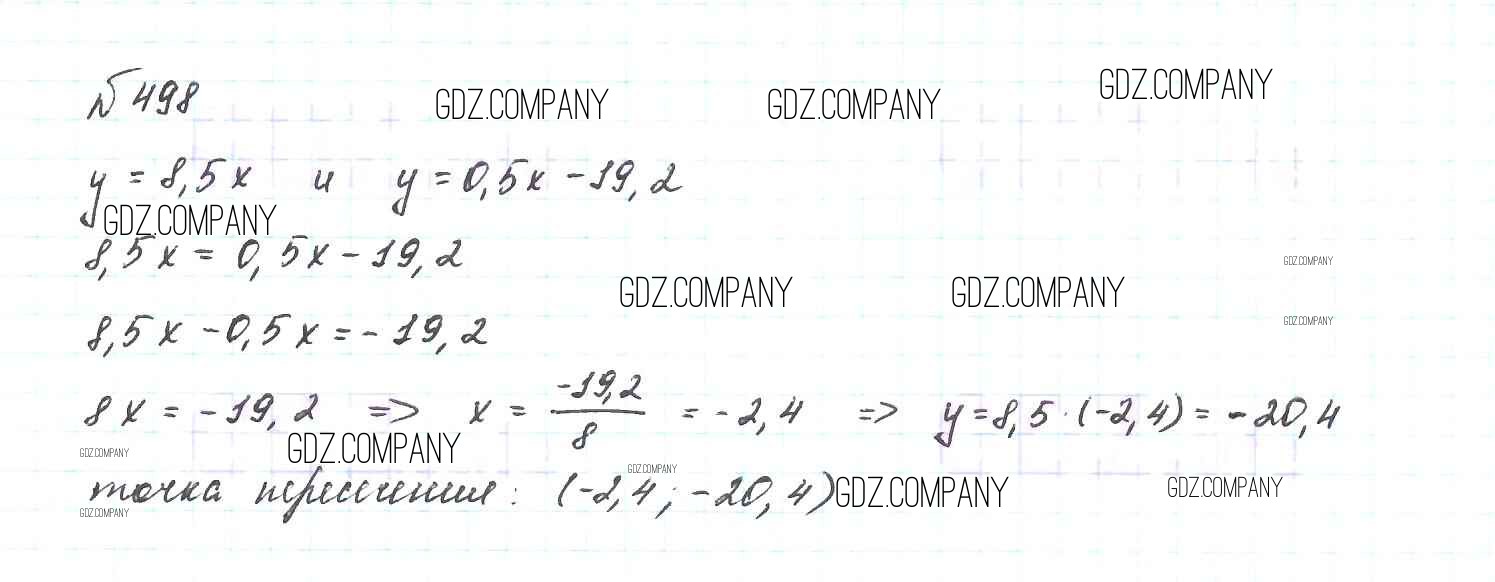 № 498
GDZ.COMPANY GDZ.COMPANY GDZ.COMPANY
y = 8,5x и y = 0,5x - 19,2
GDZ.COMPANY
8,5x = 0,5x - 19,2
GDZ.COMPANY
GDZ.COMPANY GDZ.COMPANY
GDZ.COMPANY
8,5x - 0,5x = -19,2
8x = -19,2 => x = -19,2/8 = -2,4 => y = 8,5 · (-2,4) = -20,4
GDZ.COMPANY GDZ.COMPANY
GDZ.COMPANY
точка пересечения: (-2,4; -20,4) GDZ.COMPANY GDZ.COMPANY
GDZ.COMPANY